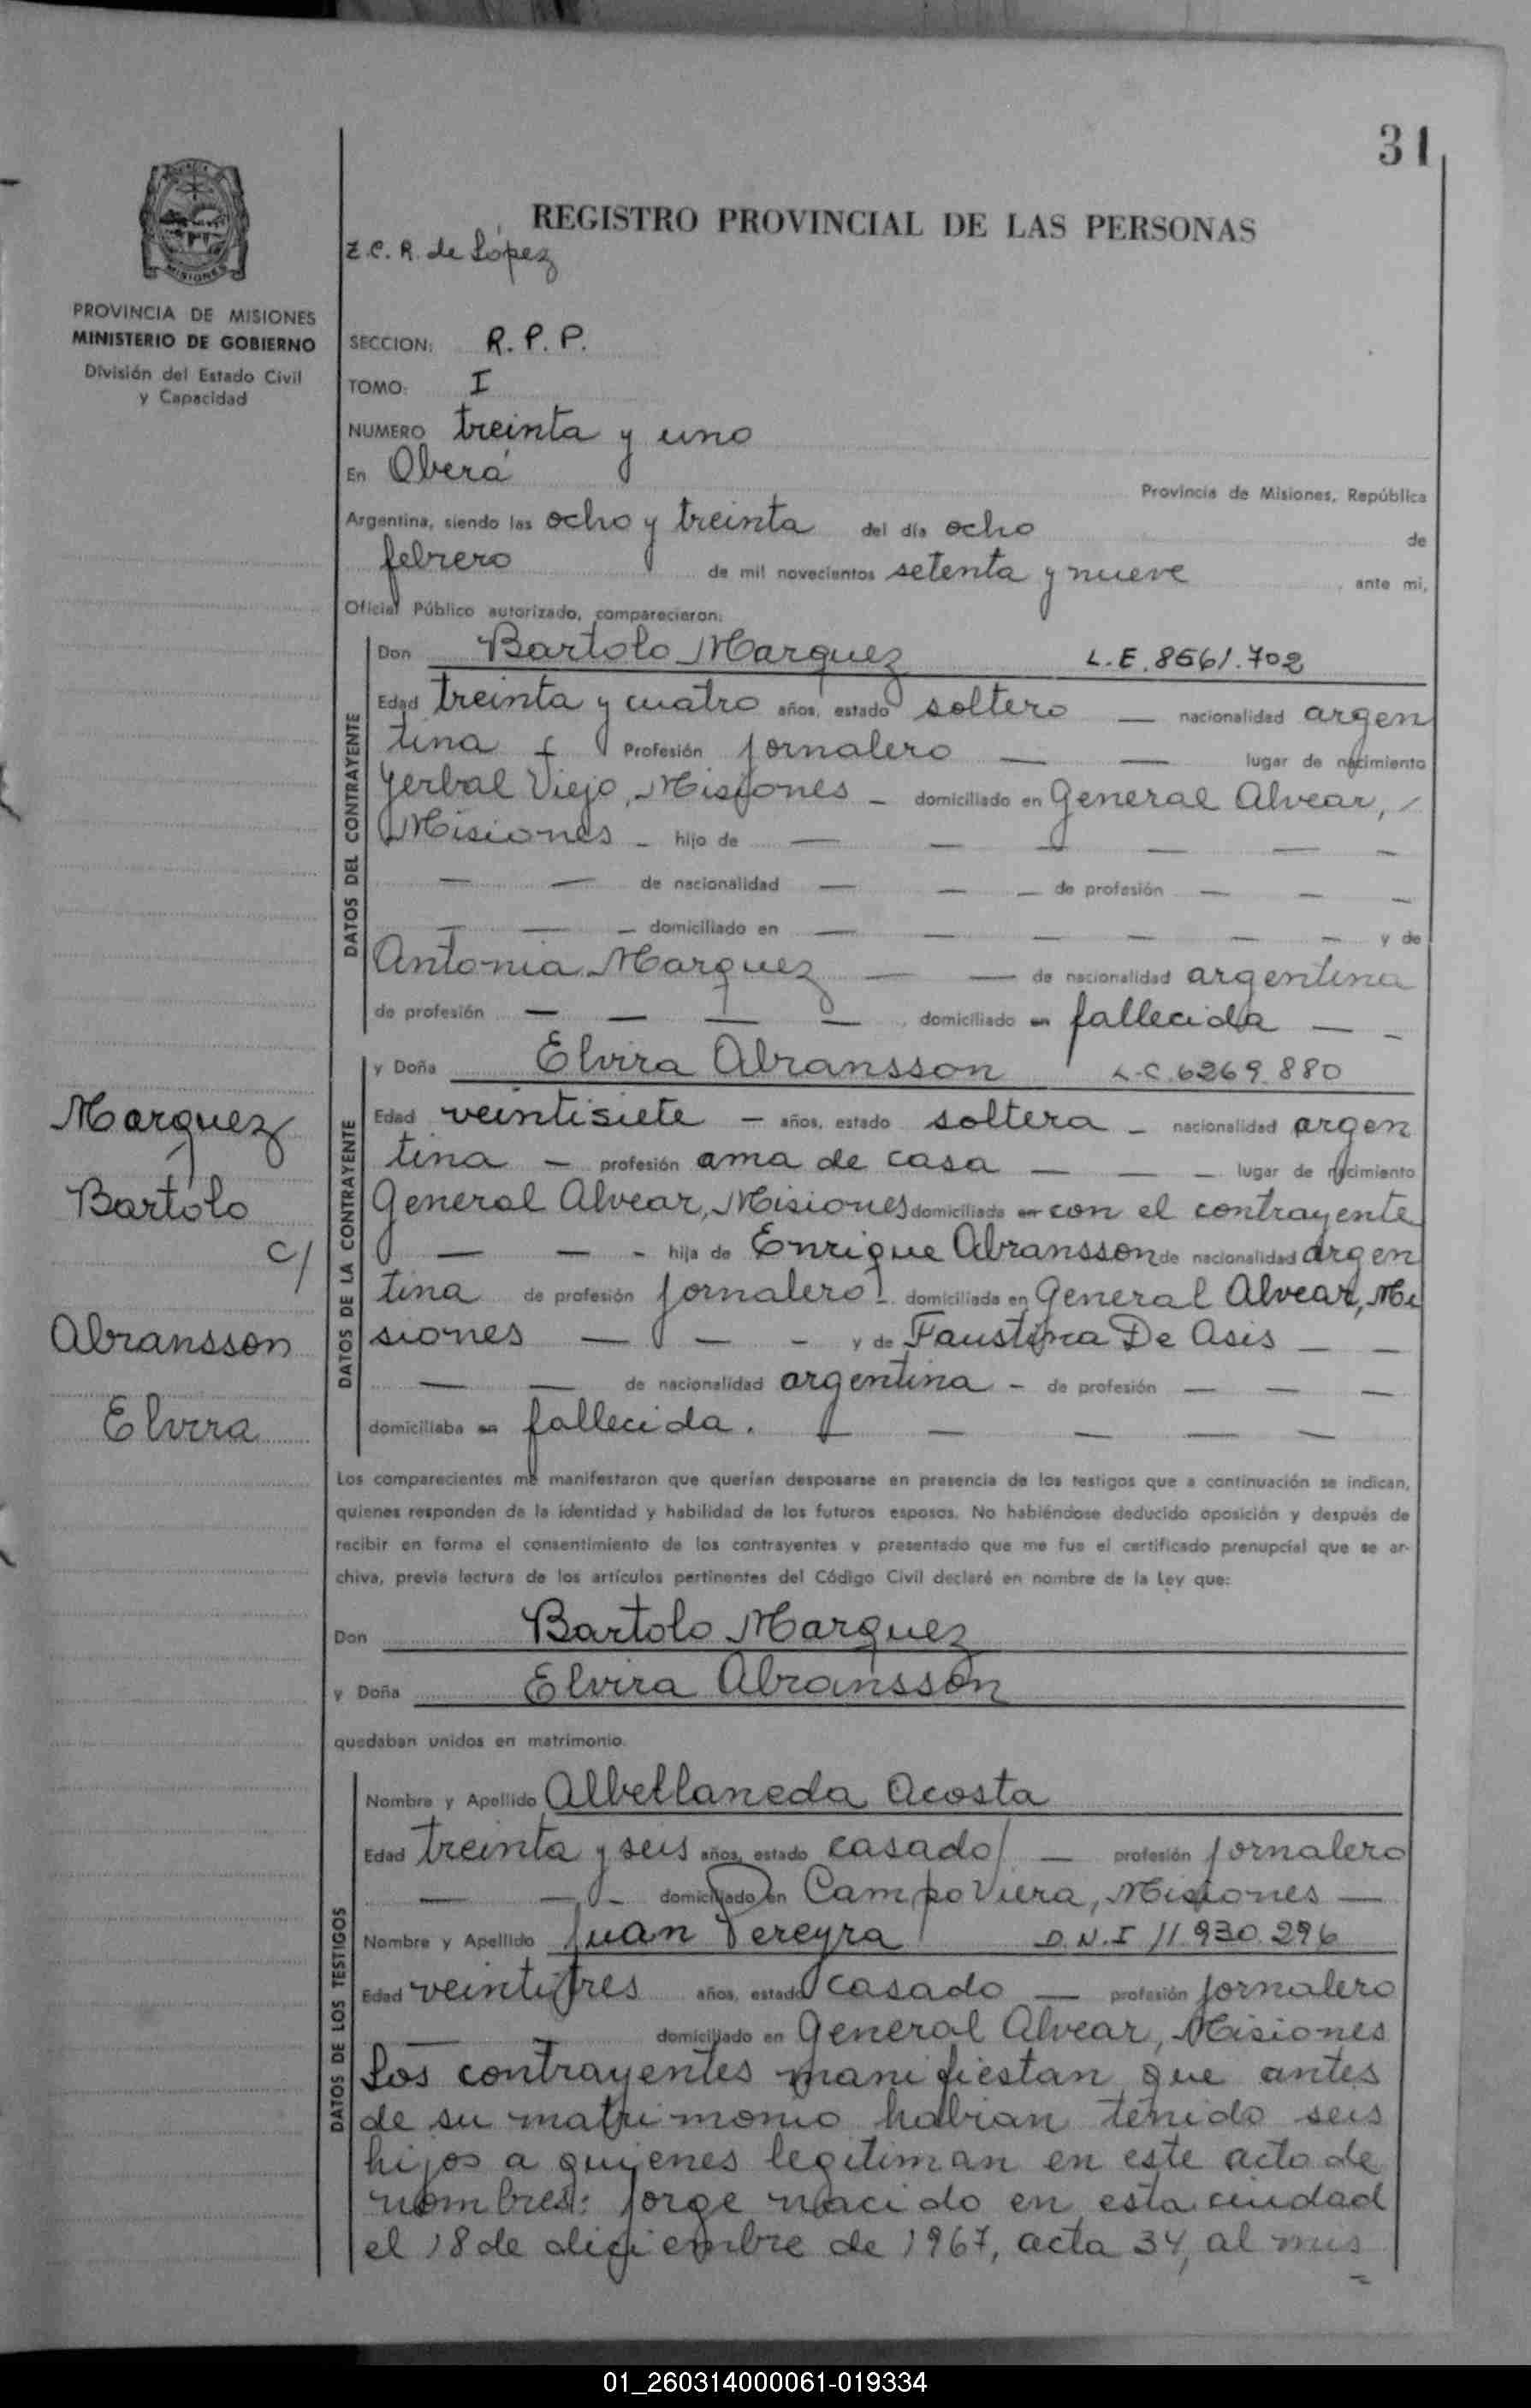 31
REGISTRO PROVINCIAL DE LAS PERSONAS
Z.C.R. de López
MISIONES
PROVINCIA DE MISIONES
MINISTERIO DE GOBIERNO
División del Estado Civil
y Capacidad
SECCION: R.P.P.
TOMO: I
NUMERO treinta y uno
En Oberá
Provincia de Misiones, República
Argentina, siendo las ocho y treinta del día ocho de
febrero de mil novecientos setenta y nueve ante mi,
Oficial Público autorizado, comparecieron:
DATOS DEL CONTRAYENTE
Don Bartolo Marquez L.E. 8561.702
Edad treinta y cuatro años, estado soltero — nacionalidad argen
tina - Profesión jornalero — — lugar de nacimiento
Yerbal Viejo, Misiones - domiciliado en General Alvear,
Misiones - hijo de — — — — — —
— — de nacionalidad — — — de profesión — — —
— — — domiciliado en — — — — — — y de
Antonia Marquez — — de nacionalidad argentina
de profesión — — — — domiciliado en fallecida — -
DATOS DE LA CONTRAYENTE
y Doña Elvira Abransson L.C. 6269.880
Edad veintisiete — años, estado soltera - nacionalidad argen
tina — profesión ama de casa — — — lugar de nacimiento
General Alvear, Misiones domiciliada en con el contrayente
— — - hija de Enrique Abransson de nacionalidad argen
tina de profesión jornalero - domiciliada en General Alvear, Mi
siones — — - y de Faustina De Asis — —
— — de nacionalidad argentina - de profesión — — —
domiciliaba en fallecida. — — — — —
Marquez
Bartolo
c/
Abransson
Elvira
Los comparecientes me manifestaron que querían desposarse en presencia de los testigos que a continuación se indican,
quienes responden de la identidad y habilidad de los futuros esposos. No habiéndose deducido oposición y después de
recibir en forma el consentimiento de los contrayentes y presentado que me fue el certificado prenupcial que se ar-
chiva, previa lectura de los artículos pertinentes del Código Civil declaré en nombre de la Ley que:
Don Bartolo Marquez
y Doña Elvira Abransson
quedaban unidos en matrimonio.
DATOS DE LOS TESTIGOS
Nombre y Apellido Albellaneda Acosta
Edad treinta y seis años, estado casado — profesión jornalero
— — - domiciliado en Campo Viera, Misiones —
Nombre y Apellido Juan Pereyra D.N.I 11.930.296
Edad veintitres años, estado casado — profesión jornalero
— - domiciliado en General Alvear, Misiones
Los contrayentes manifiestan que antes
de su matrimonio habian tenido seis
hijos a quienes legitiman en este acto de
nombres: Jorge nacido en esta ciudad
el 18 de diciembre de 1967, acta 34, al mis
=
01_260314000061-019334